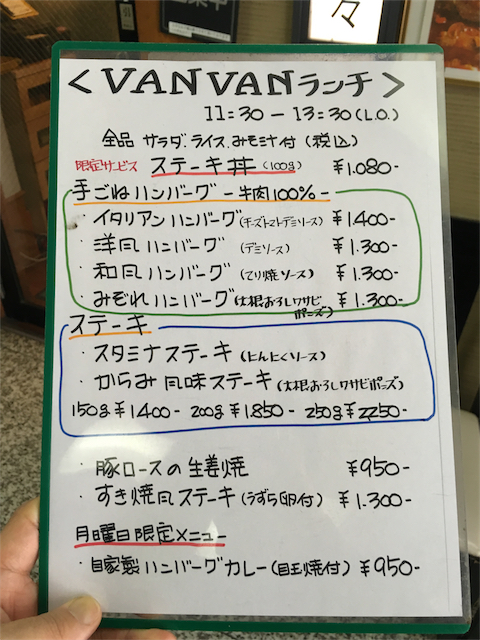 々
< VANVANランチ >
11:30 - 13:30(L.O.)
全品 サラダ、ライス、みそ汁付 (税込)
限定サービス ステーキ丼 (100g) ¥1.080-
手ごねハンバーグ -牛肉100%-
・イタリアンハンバーグ(チーズトマトデミソース) ¥1.400-
・洋風ハンバーグ (デミソース) ¥1.300-
・和風ハンバーグ (てり焼ソース) ¥1.300-
・みぞれハンバーグ(大根おろしワサビポン酢) ¥1.300-
ステーキ
・スタミナステーキ (にんにくソース)
・からみ風味ステーキ(大根おろしワサビポン酢)
150g ¥1400- 200g ¥1.850- 250g ¥2250-
・豚ロースの生姜焼 ¥950-
・すき焼風ステーキ(うずら卵付) ¥1.300-
月曜日限定メニュー
・自家製ハンバーグカレー(目玉焼付) ¥950-